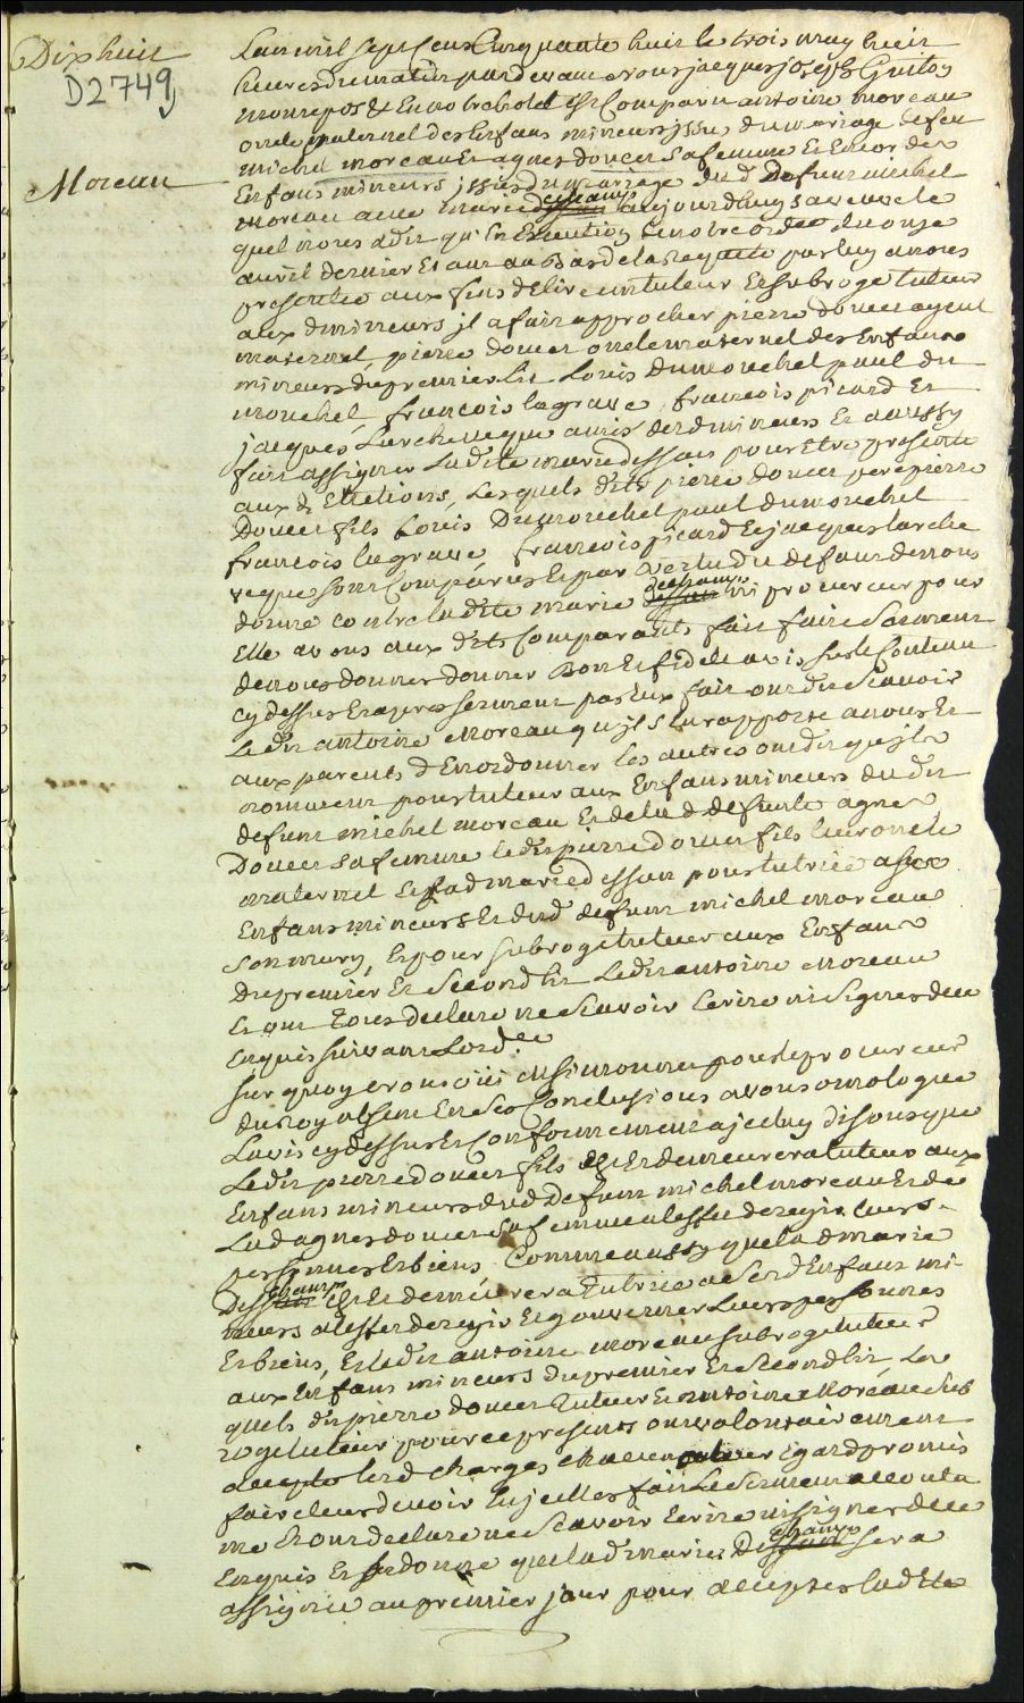 Dix huit
D2749
Moreau
Lan mil sept cens Cinquante huit le trois may huit
heures du matin pardevant nous jacques joseph Guiton
monrepos & En notre hotel Est Comparu antoine moreau
oncle paternel des Enfans mineurs jssus du mariage de feu
michel moreau Et agnes doucet sa femme Et Encor des
Enfans mineurs jssus du mariage du d. Defunt michel
moreau avec marie deschamps aujourdhuy sa veuve le
quel nous a dit qu'En Execution de notre orde. du onze
avril dernier Et ant au bas de la Requete par luy a nous
presentée aux fins d'Elire un tuteur Et subrogé tuteur
aux d. mineurs jl a fait approcher pierre doucet ayeul
maternel, pierre doucet oncle maternel des Enfans
mineurs du premier lit Louis Dumouchel paul du
mouchel, francois lagrave, francois picard Et
jacques Larcheveque amis desd. mineurs Et aussy
fait assigner Ladite marie dessan pour Etre presente
aux d. Elections, Lesquels dits pierre doucet pere pierre
Doucet fils Louis Dumouchel paul dumouchel
francois lagrave, francois picard Et jacques larche
veque sont Comparus Et par vertu du defaut de nous
donné contre ladite marie deschamps ni procureur pour
Elle avons aux dits Comparants fait faire Serment
de nous donner donner Bon Et fidele avis sur le Contenu
cy dessus Et apres serment par Eux fait ont dit Scavoir
Ledit antoine Moreau qu'jl s'En rapporte a nous Et
aux parents d'En ordonner les autres ont dit qu'jls
nomment pour tuteur aux Enfans mineurs du dit
defunt michel moreau Et de lad. defunte agnes
Doucet sa femme ledit pierre doucet fils leur oncle
maternel Et lad marie dessan pour tutrice a ses
Enfans mineurs Et dud. defunt michel moreau
son mary, Et pour subrogé tuteur aux Enfans
du premier Et Second lit Ledit antoine Moreau
Et ont Tous declaré ne Scavoir Ecrire ni Signer de ce
Enquis suivant Lord.ce
sur quoy nous oüi cusimonnet pour le procureur
du Roy absent En Ses Conclusions avons omologué
Lavis cy dessus Et Conformement a jceluy disons que
Ledit pierre doucet fils Est Et demeurera tuteur aux
Enfans mineurs dud. Defunt michel moreau Et de
Lad agnes doucet sa femme a leffet de regir leurs
personnes Et biens, Comme aussy que lad marie
Deschamps Est Et demeurera Tutrice a Sesd. Enfans mi
neurs a leffet de regir Et gouverner Leurs personnes
Et biens, Et ledit antoine moreau subrogé tuteur
aux Enfans mineurs du premier Et Second lit, Les
quels dits pierre doucet Tuteur Et antoine Moreau sub
rogé tuteur pour ce presents ont volontairement
accepté lesd. charges chacun a leur Egard promis
faire leur devoir En jcelles fait Le Serment accoutu
mé Et ont declaré ne Scavoir Ecrire ni signer de ce
Enquis Et ordonné que lad. marie Deschamps sera
assignée au premier jour pour accepter ladite